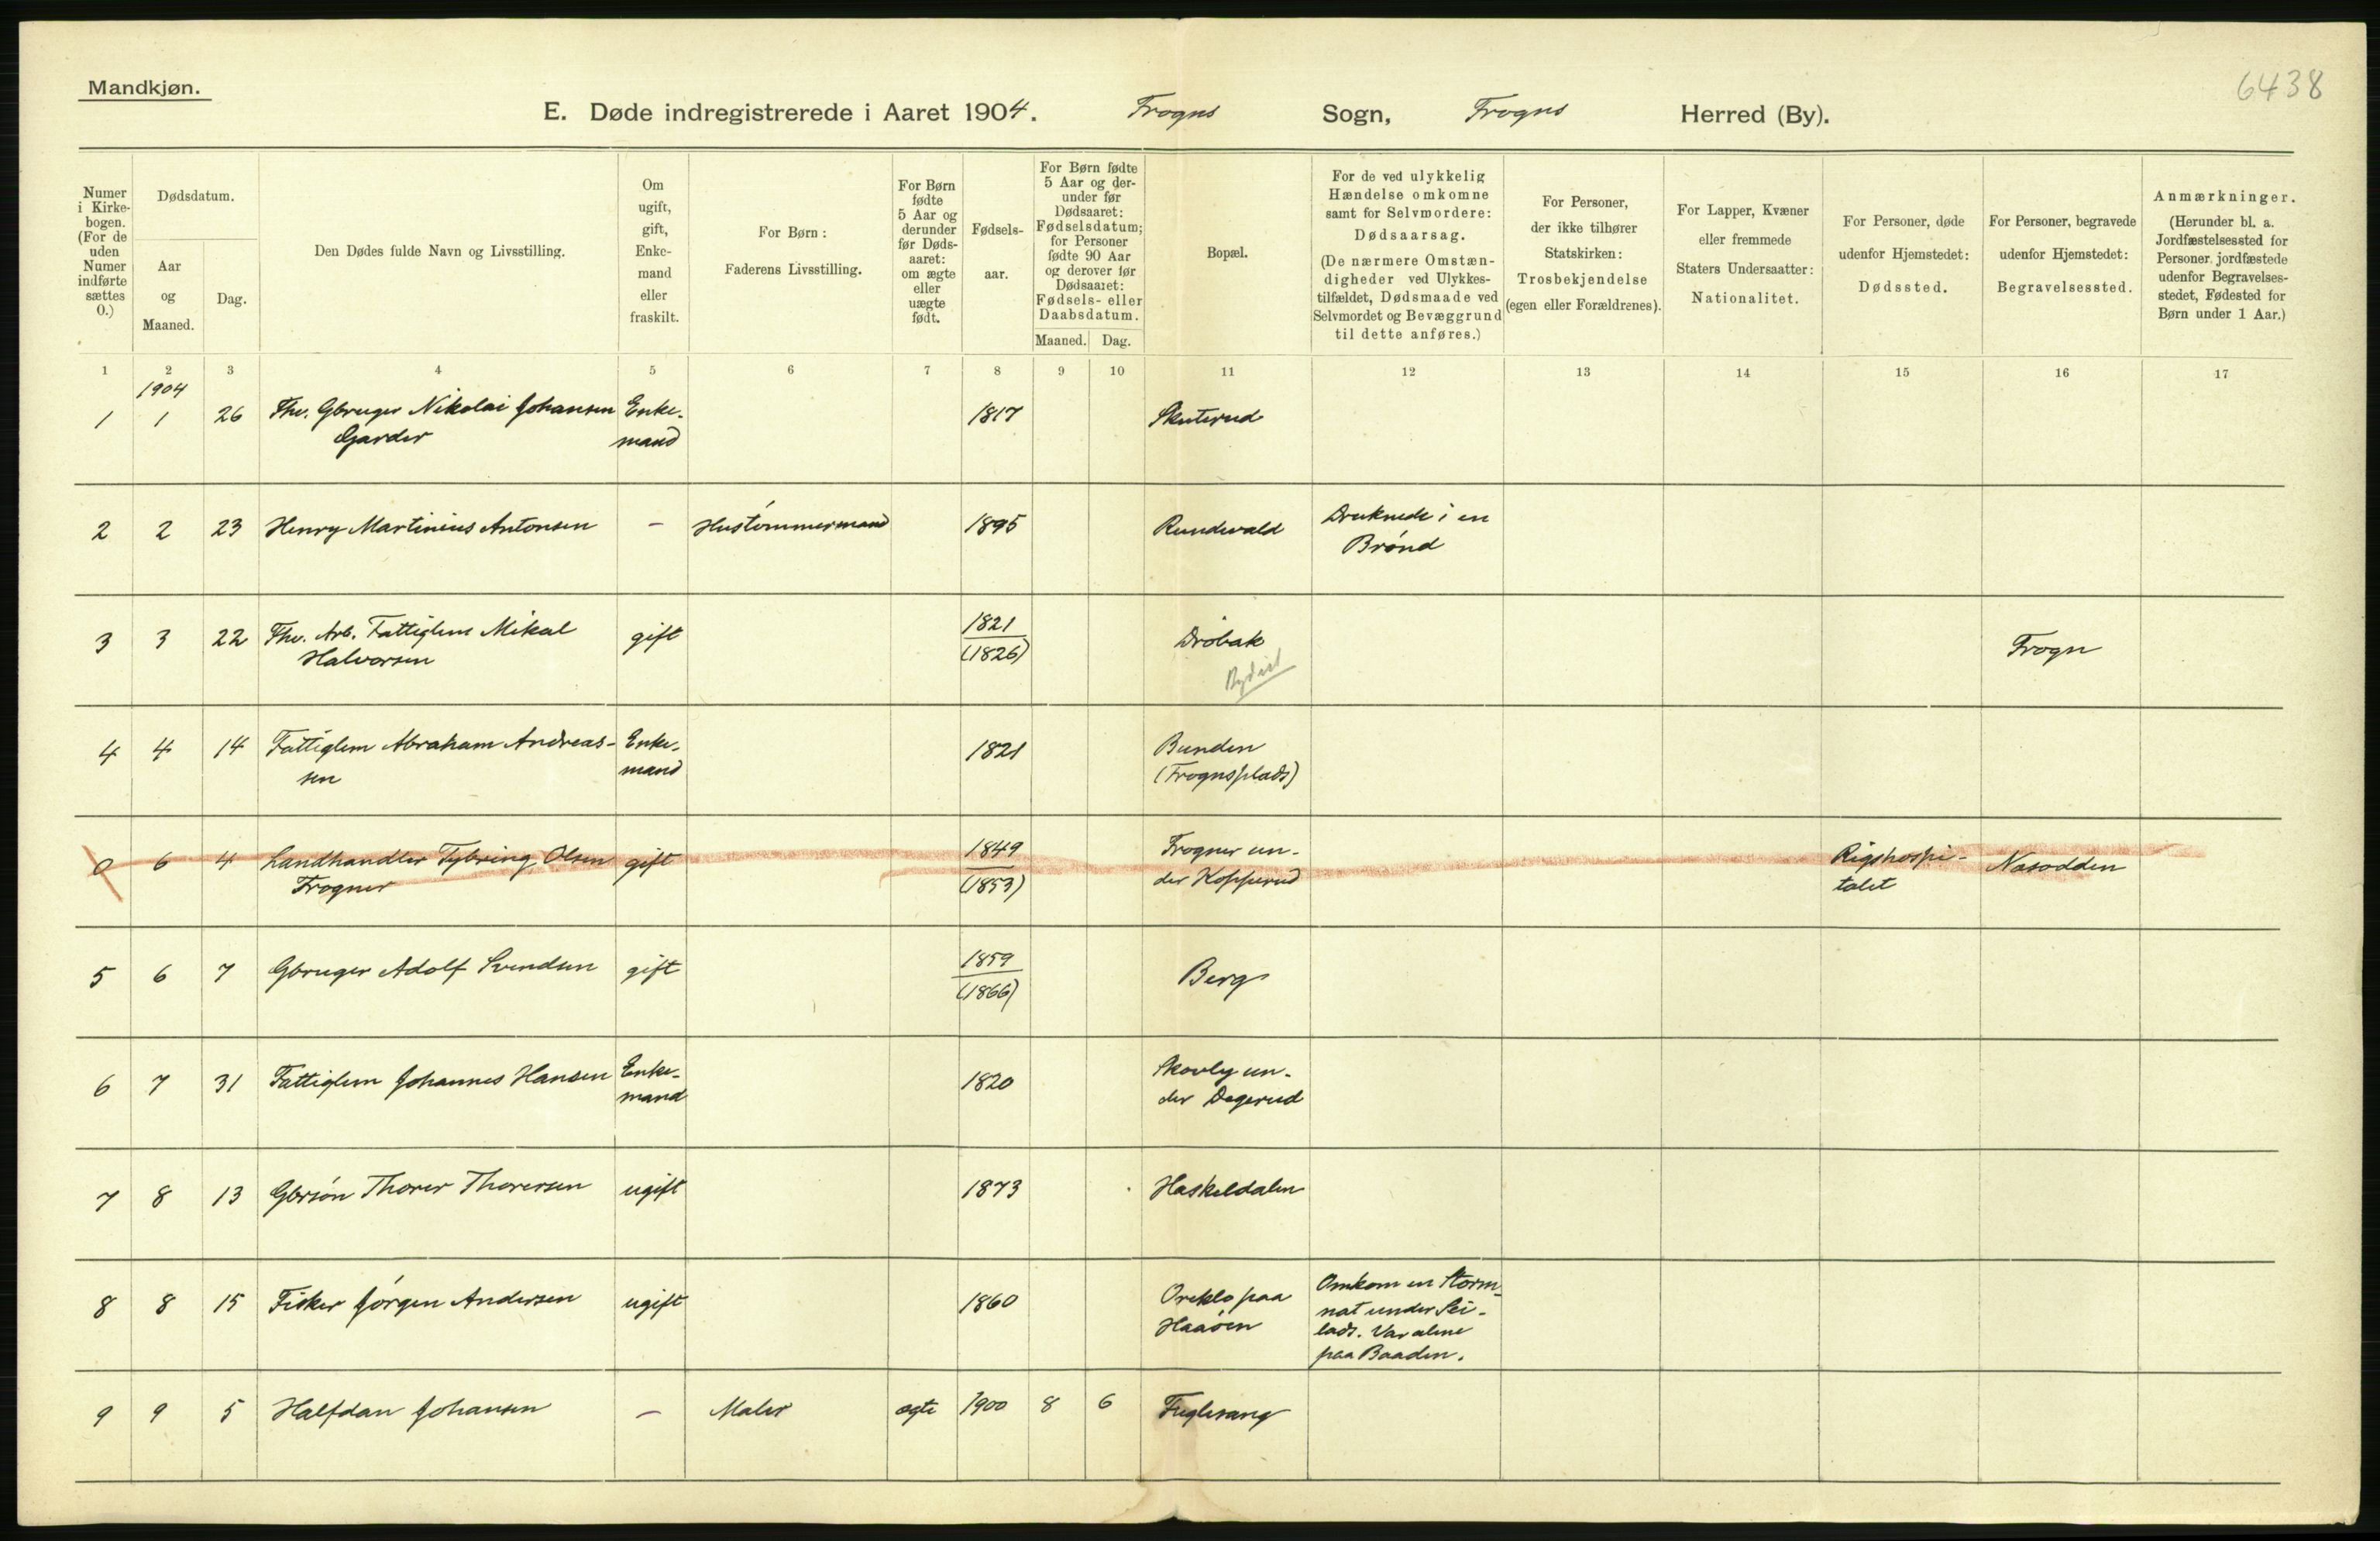 Mandkjøn.
6438
E. Døde indregistrerede i Aaret 1904. Frogns Sogn, Frogns Herred (By).
Numer i Kirke-bogen. (For de uden Numer indførte sættes 0.)
Dødsdatum.
Aar og Maaned.
Dag.
Den Dødes fulde Navn og Livsstilling.
Om ugift, gift, Enke-mand eller fraskilt.
For Børn: Faderens Livsstilling.
For Børn fødte 5 Aar og derunder før Døds-aaret: om ægte eller uægte født.
Fødsels-aar.
For Børn fødte 5 Aar og der-under før Dødsaaret: Fødselsdatum; for Personer fødte 90 Aar og derover før Dødsaaret: Fødsels- eller Daabsdatum.
Maaned. Dag.
Bopæl.
For de ved ulykkelig Hændelse omkomne samt for Selvmordere: Dødsaarsag. (De nærmere Omstæn-digheder ved Ulykkes-tilfældet, Dødsmaade ved Selvmordet og Bevæggrund til dette anføres.)
For Personer, der ikke tilhører Statskirken: Trosbekjendelse (egen eller Forældrenes).
For Lapper, Kvæner eller fremmede Staters Undersaatter: Nationalitet.
For Personer, døde udenfor Hjemstedet: Dødssted.
For Personer, begravede udenfor Hjemstedet: Begravelsessted.
Anmærkninger. (Herunder bl. a. Jordfæstelsessted for Personer jordfæstede udenfor Begravelses-stedet, Fødested for Børn under 1 Aar.)
1 2 3 4 5 6 7 8 9 10 11 12 13 14 15 16 17
1904
1 1 26 Fhv. Gbruger Nikolai Johansen Enke- 1817 Skuterud
Garder mand
2 2 23 Henry Martinius Antonsen – Hustømmermand 1895 Rundvald Druknede i en
Brønd
3 3 22 Fhv. Arb. Fattiglem Mikal gift 1821 Drøbak Frogn
Halvorsen (1826)
4 4 14 Fattiglem Abraham Andreas- Enke- 1821 Bunden
sen mand (Frognsplads)
0 6 4 Landhandler Tybring Olsen gift 1849 Frogner un- Rigshospi- Næsodden
Frogner (1853) der Kopperud talet
5 6 7 Gbruger Adolf Svendsen gift 1859 Berg
(1866)
6 7 31 Fattiglem Johannes Hansen Enke- 1820 Skovly un-
mand der Degerud
7 8 13 Gbrsøn Thorer Thorersen ugift 1873 Haskeldalen
8 8 15 Fisker Jørgen Andersen ugift 1860 Oreklo paa Omkom en Storm-
Haaøen nat under Sei-
lads. Var alene
paa Baaden.
9 9 5 Halfdan Johansen – Maler ægte 1900 8 6 Fuglesang